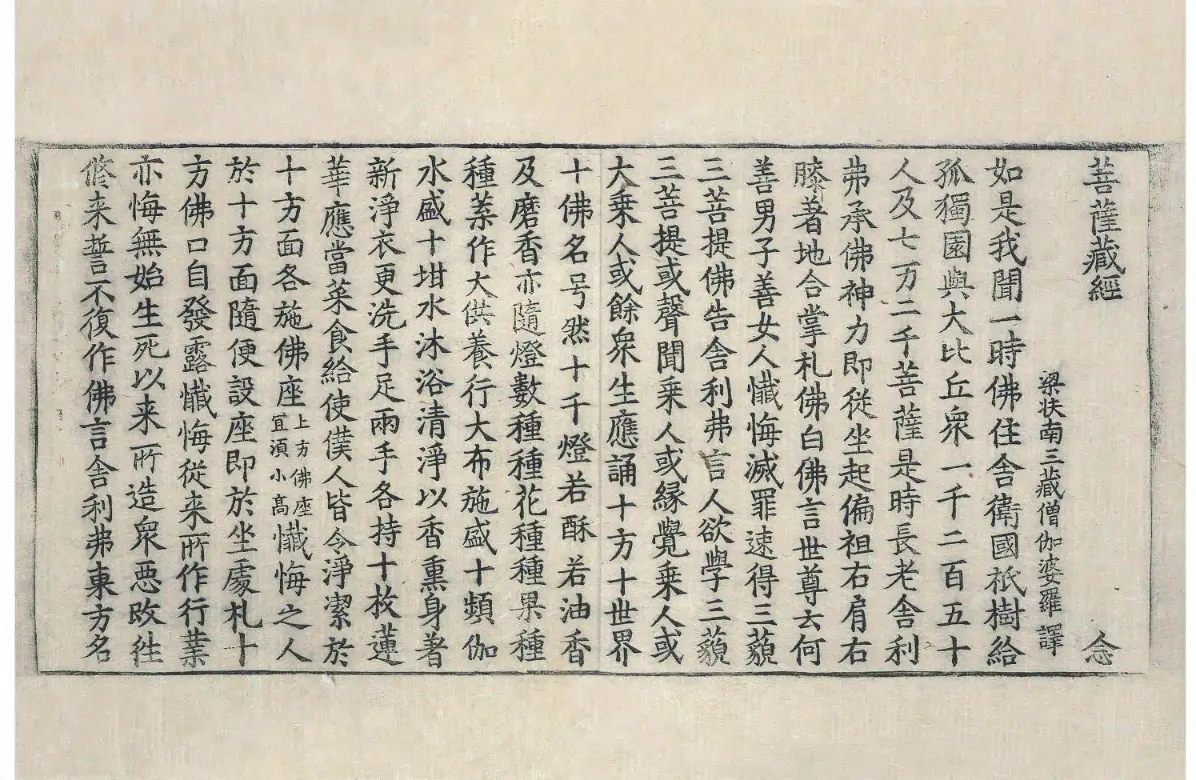 菩薩藏經 念
梁扶南三藏僧伽婆羅譯
如是我聞一時佛住舍衛國祇樹給
孤獨園與大比丘衆一千二百五十
人及七万二千菩薩是時長老舍利
弗承佛神力即從坐起偏袒右肩右
膝著地合掌礼佛白佛言世尊云何
善男子善女人懺悔滅罪速得三藐
三菩提佛告舍利弗言人欲學三藐
三菩提或聲聞乗人或縁覺乗人或
大乗人或餘衆生應誦十方十世界
十佛名号然十千燈若酥若油香
及磨香亦隨燈數種種花種種果種
種菜作大供養行大布施盛十頻伽
水盛十坩水沐浴清淨以香熏身著
新淨衣更洗手足兩手各持十枚蓮
華應當菜食給使僕人皆令淨潔於
十方面各施佛座上方佛座宜湏小高懺悔之人
於十方面隨便設座即於坐處礼十
方佛口自發露懺悔從来所作行業
亦悔無始生死以来所造衆惡改往
修来誓不復作佛言舍利弗東方名